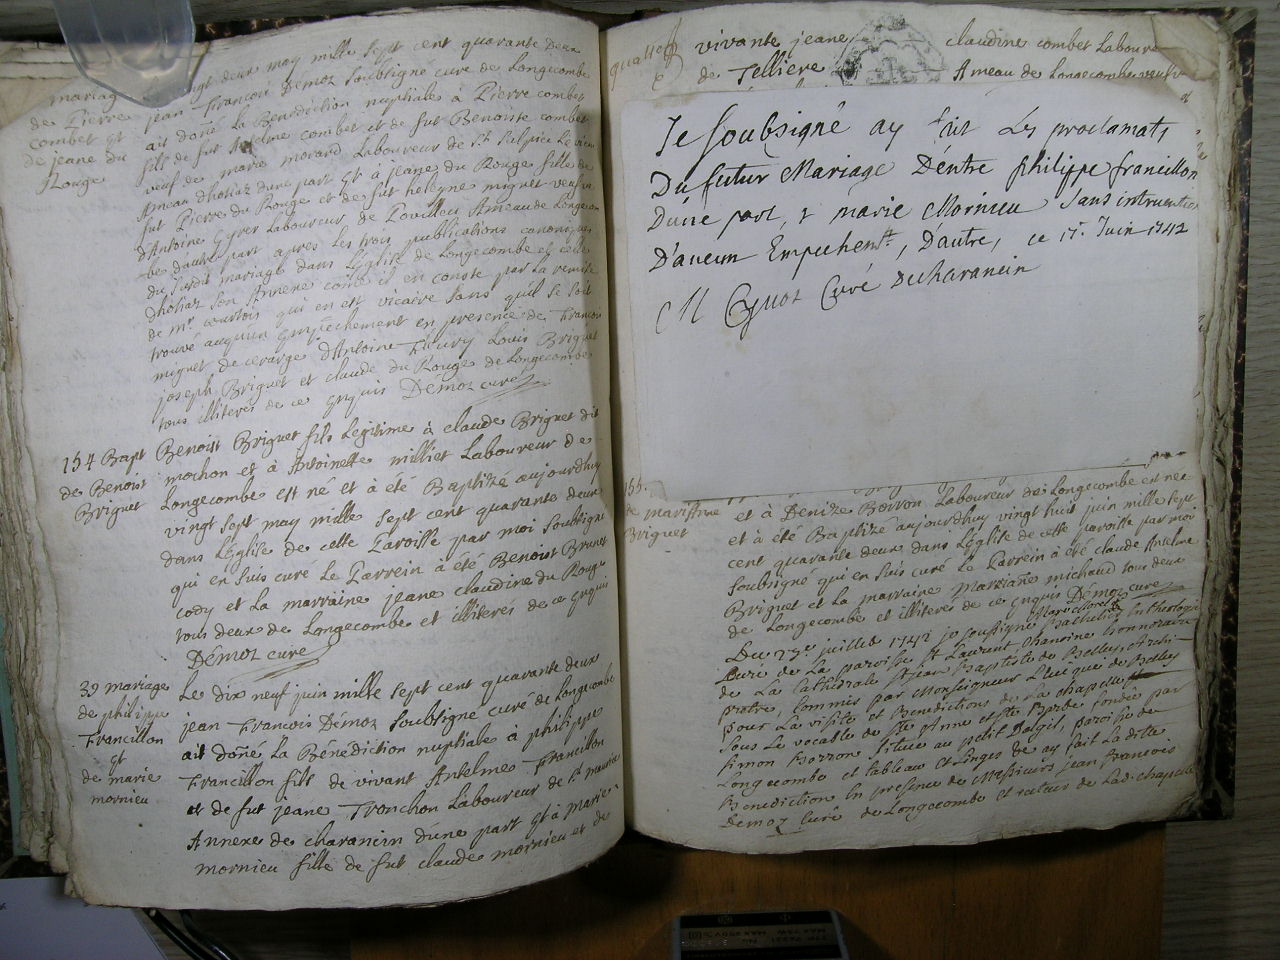 mariage
de Pierre
combet et
de jeane du
Rouge
vingt deux may mille sept cent quarante deux
jean François Démoz soubsigné curé de Longecombe
ait doñé La Benediction nuptiale à Pierre combet
fils de fut Anselme combet et de fut Benoiste combet
veuf de marie morard Laboureur de st Sulpice Le vieux
Ameau dhotiaz dune part et à jeane du Rouge fille de
fut Pierre du Rouge et de fut heleyne miguet veufve
d'Antoine Gyrer Laboureur de Ameau de Longecom
be dautre part après Les trois publications canoniques
du susdit mariage dans L'église de Longecombe et celle
dhotiaz son Annexe come il en conste par La remise
de mr courtois qui en est vicaire sans qu'il se soit
trouvé auquün empêchement en presence de François
miguet de cerarge d'Antoine Fleury Louis Briguet
joseph Briguet et claude du Rouge de Longecombe
tous illiterés de ce enquis Démoz curé
154 Bapt
de Benoist
Briguet
Benoist Briguet fils Legitime à claude Briguet dit
mochon et à Antoinette milliet Laboureur de
Longecombe est né et à été Baptizé aujourdhuy
vingt sept may mille sept cent quarante deux
dans L'église de cette Paroisse par moi soubsigné
qui en suis curé Le Parrein à été Benoist Brunet
cody et La marraine jeane claudine du Rouge
tous deux de Longecombe et illiterés de ce enquis
Démoz curé
39 mariage
de philippe
Francillon
et
de marie
mornieu
Le dix neuf juin mille sept cent quarante deux
jean François Démoz soubsigné curé de Longecombe
ait doñé La Bénédiction nuptiale à philippe
Francillon fils de vivant Antelme Francillon
et de fut jeane Tronchon Laboureur de st maurice
Annexe de charancin dune part et à marie
mornieu fille de fut claude mornieu et de
vivante jeane claudine combet Laboure
de Telliere Ameau de Longecombe veufve
Je soubsigné ay fait Les proclamats
Du futur Mariage D'entre philippe francillon
Dune part, & marie Mornieu sans intrumtion
D'aucun Empechemt, D'autre, ce 17e Juin 1742
M Guot Curé De charancin
155.
de marianne
Briguet
et à Denize Borron Laboureur de Longecombe est née
et à été Baptizé aujourdhuy vingt huit juin mille sept
cent quarante deux dans L'église de cette paroisse par moi
soubsigné qui en suis curé Le Parrein à été claude Anselme
Briguet et La marraine marianne michaud tous deux
de Longecombe et illiterés de ce enquis Démoz curé
Du 29e juillet 1742 je soussigné Bachelier en theologie
Curé de La paroisse st Laurent, chanoine honnoraire
de La Cathedrale st jean Baptiste de Belley, Archi-
pretre, Commis par Monseigneur L'evêque de Belley
pour La visite et Benedictions de La chapelle
sous Le vocable de ste Anne et ste Barbe fondée par
simon Borron située au petit Dolgit, paroisse de
Longecombe et tableau et Linges de ay fait La dite
Benediction En presence de Messieurs jean francois
Demoz Curé de Longecombe et recteur de Lad: chapelle